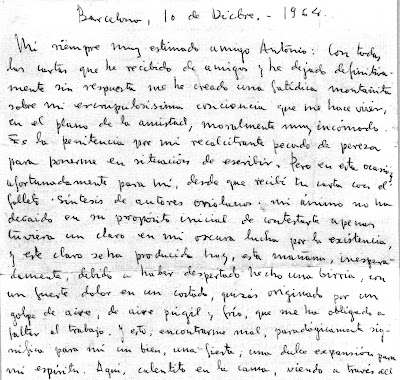 Barcelona, 10 de Dicbre. - 1964.
Mi siempre muy estimado amigo Antonio: Con todas
las cartas que he recibido de amigos y he dejado definitiva-
mente sin respuesta me he creado una fatídica montañita
sobre mi escrupulosissima conciencia que me hace vivir,
en el plano de la amistad, moralmente muy incómodo.
Es la penitencia por mi recalcitrante pecado de pereza
para ponerme en situación de escribir. Pero en esta ocasión,
afortunadamente para mí, desde que recibí tu carta con el
folleto "Síntesis de autores oriolanos" mi ánimo no ha
decaído en su propósito inicial de contestarte apenas
tuviera un claro en mi oscura lucha por la existencia,
y este claro se ha producido hoy, esta mañana, inespera-
damente, debido a haber despertado hecho una birria, con
un fuerte dolor en un costado, quizás originado por un
golpe de aire, de aire pícaro y frío, que me ha obligado a
faltar al trabajo. Y esto, encontrarme mal, paradógicamente sig-
nifica para mí un bien, una fiesta, una dulce expansión para
mi espíritu. Aquí, calentito en la cama, viendo a través del